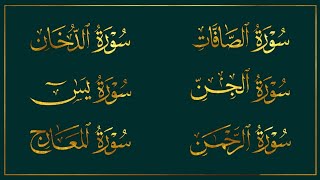 سُورَةُ ٱلصَّافَّاتِ سُورَةُ ٱلدُّخَانِ
سُورَةُ ٱلْجِنِّ سُورَةُ يسٓ
سُورَةُ ٱلرَّحْمَٰن سُورَةُ ٱلْمَعَارِجِ